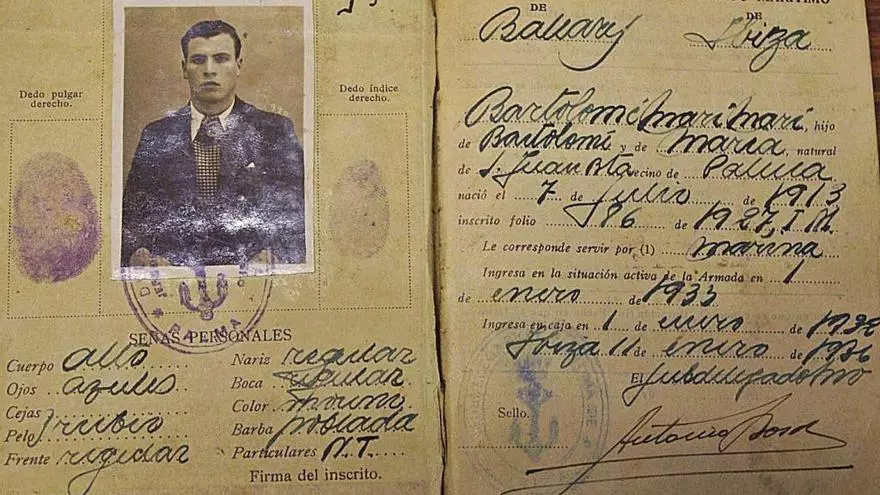 Dedo pulgar
derecho.
Dedo índice
derecho.
PALMA
SEÑAS PERSONALES
Cuerpo alto
Ojos azules
Cejas
Pelo rubio
Frente regular
Nariz regular
Boca regular
Color moreno
Barba poblada
Particulares N.T.
Firma del inscrito.
MARITIMO
DE DE
Baleares Ibiza
Bartolomé Mari Mari, hijo
de Bartolomé y de Maria, natural
de S. Juan Bta vecino de Palma
nació el 7 de Julio de 1913
inscrito folio 86 de 1927, I. M.
Le corresponde servir por (1) marina
Ingresa en la situación activa de la Armada en 1
de enero de 1933
Ingresa en caja en 1 enero de 1932
Ibiza 11 de enero de 1936
El Subdelegado Mno
Sello.
Antonio